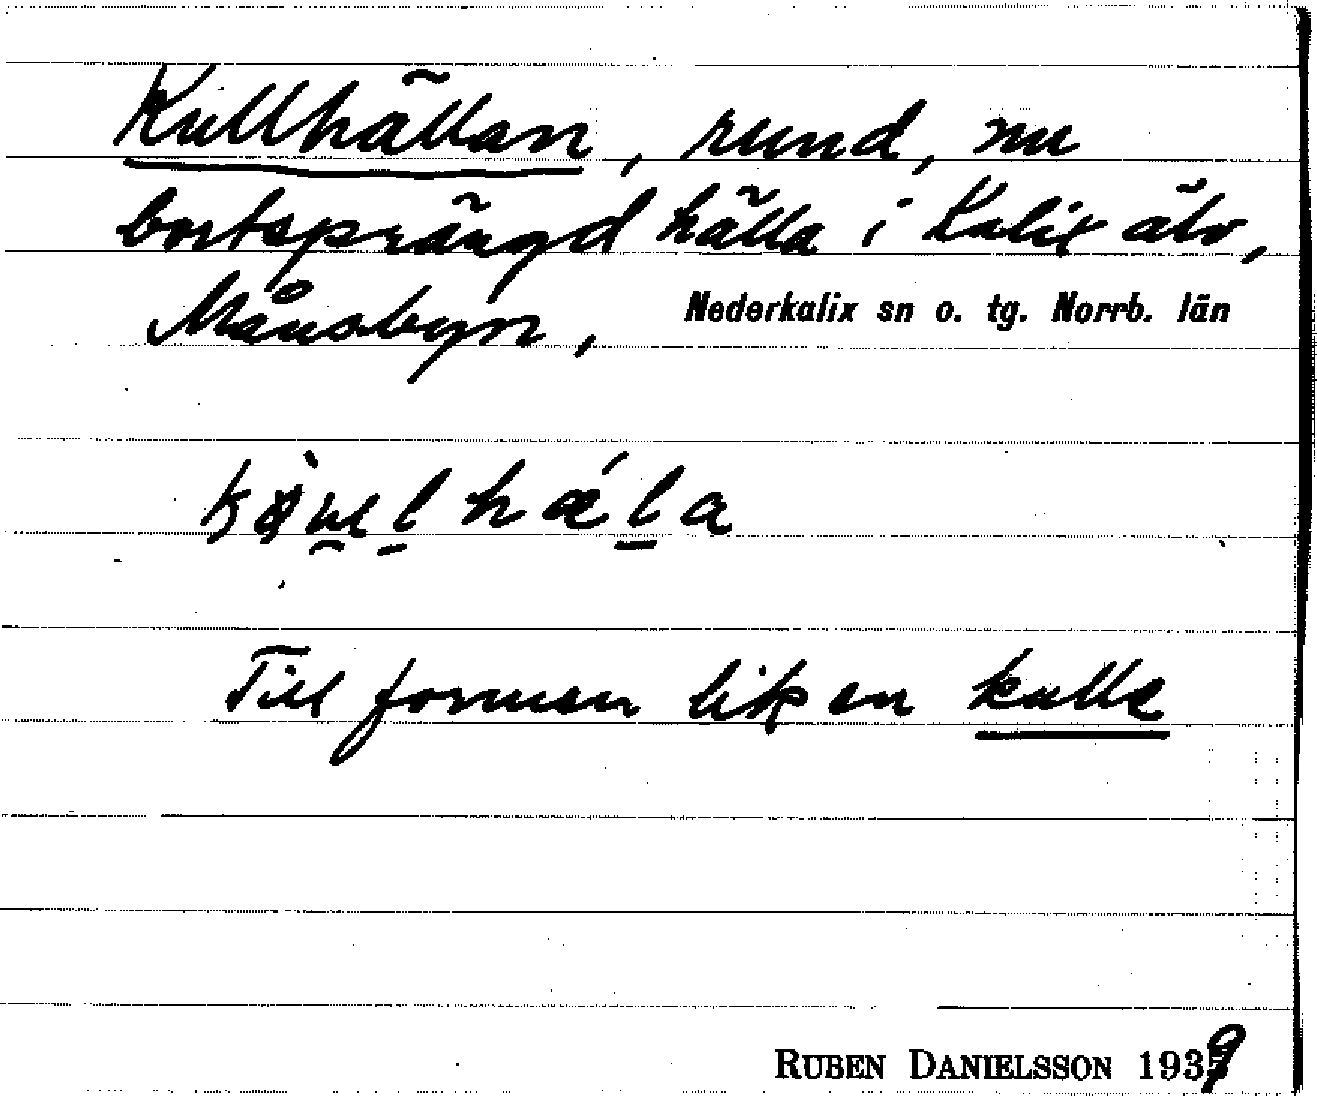 Kullhällan, rund, nu
bortsprängd hälla i Kalix älv,
Månsbyn, Nederkalix sn o. tg. Norrb. län
Till formen lik en kulle
RUBEN DANIELSSON 1939